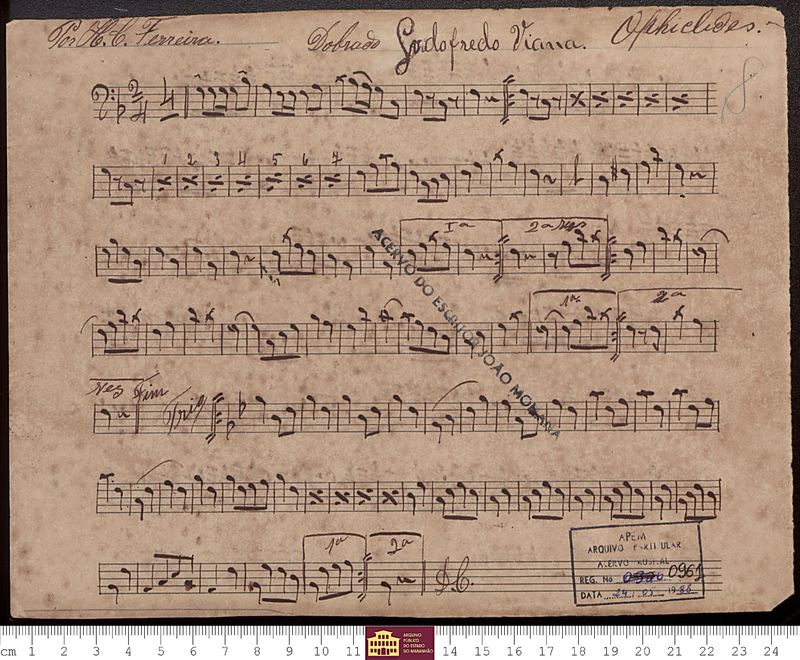 Por H. C. Ferreira. Dobrado Godofredo Viana. Ophiclides.
8
2/4
1 2 3 4 5 6 7
1ª 2ª vez
1ª 2ª
vez Fim Trio
1ª 2ª D.C.
ACERVO DO ESCRITOR JOÃO MOHANA
APEM
ARQUIVO PARTICULAR
ACERVO MUSICAL
REG. No 0961
DATA
cm 1 2 3 4 5 6 7 8 9 10 11 14 15 16 17 18 19 20 21 22 23 24
ARQUIVO
PÚBLICO
DO ESTADO
DO MARANHÃO